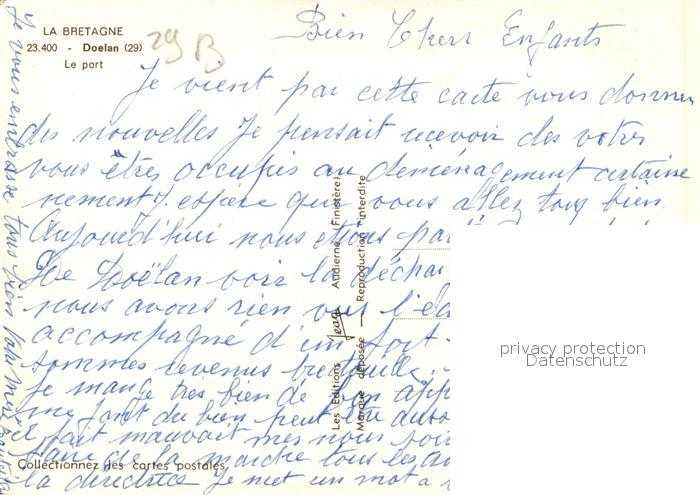 LA BRETAGNE
23.400 - Doelan (29)
Le port
29 B
Bien Chers Enfants
Je vient par cette carte vous donner
des nouvelles Je pensait recevoir des votres
vous êtres occupés au déménagement certaine
nement J'espère que vous allez tous bien
Aujourd'hui nous étions par
De Doëlan voir la décha
nous avons rien vus l'ea
accompagné d'un fort
sommes revenus bredouille.
Je mange très bien de bon app
me font du bien peut
il fait mauvait mes nous
faire de la marche tous les
la directrice Je met un mot a
Je vous embrasse tous bien
Les Editions Jean Audierne (Finistère)
Marque déposée — Reproduction interdite
Collectionnez les cartes postales
privacy protection
Datenschutz